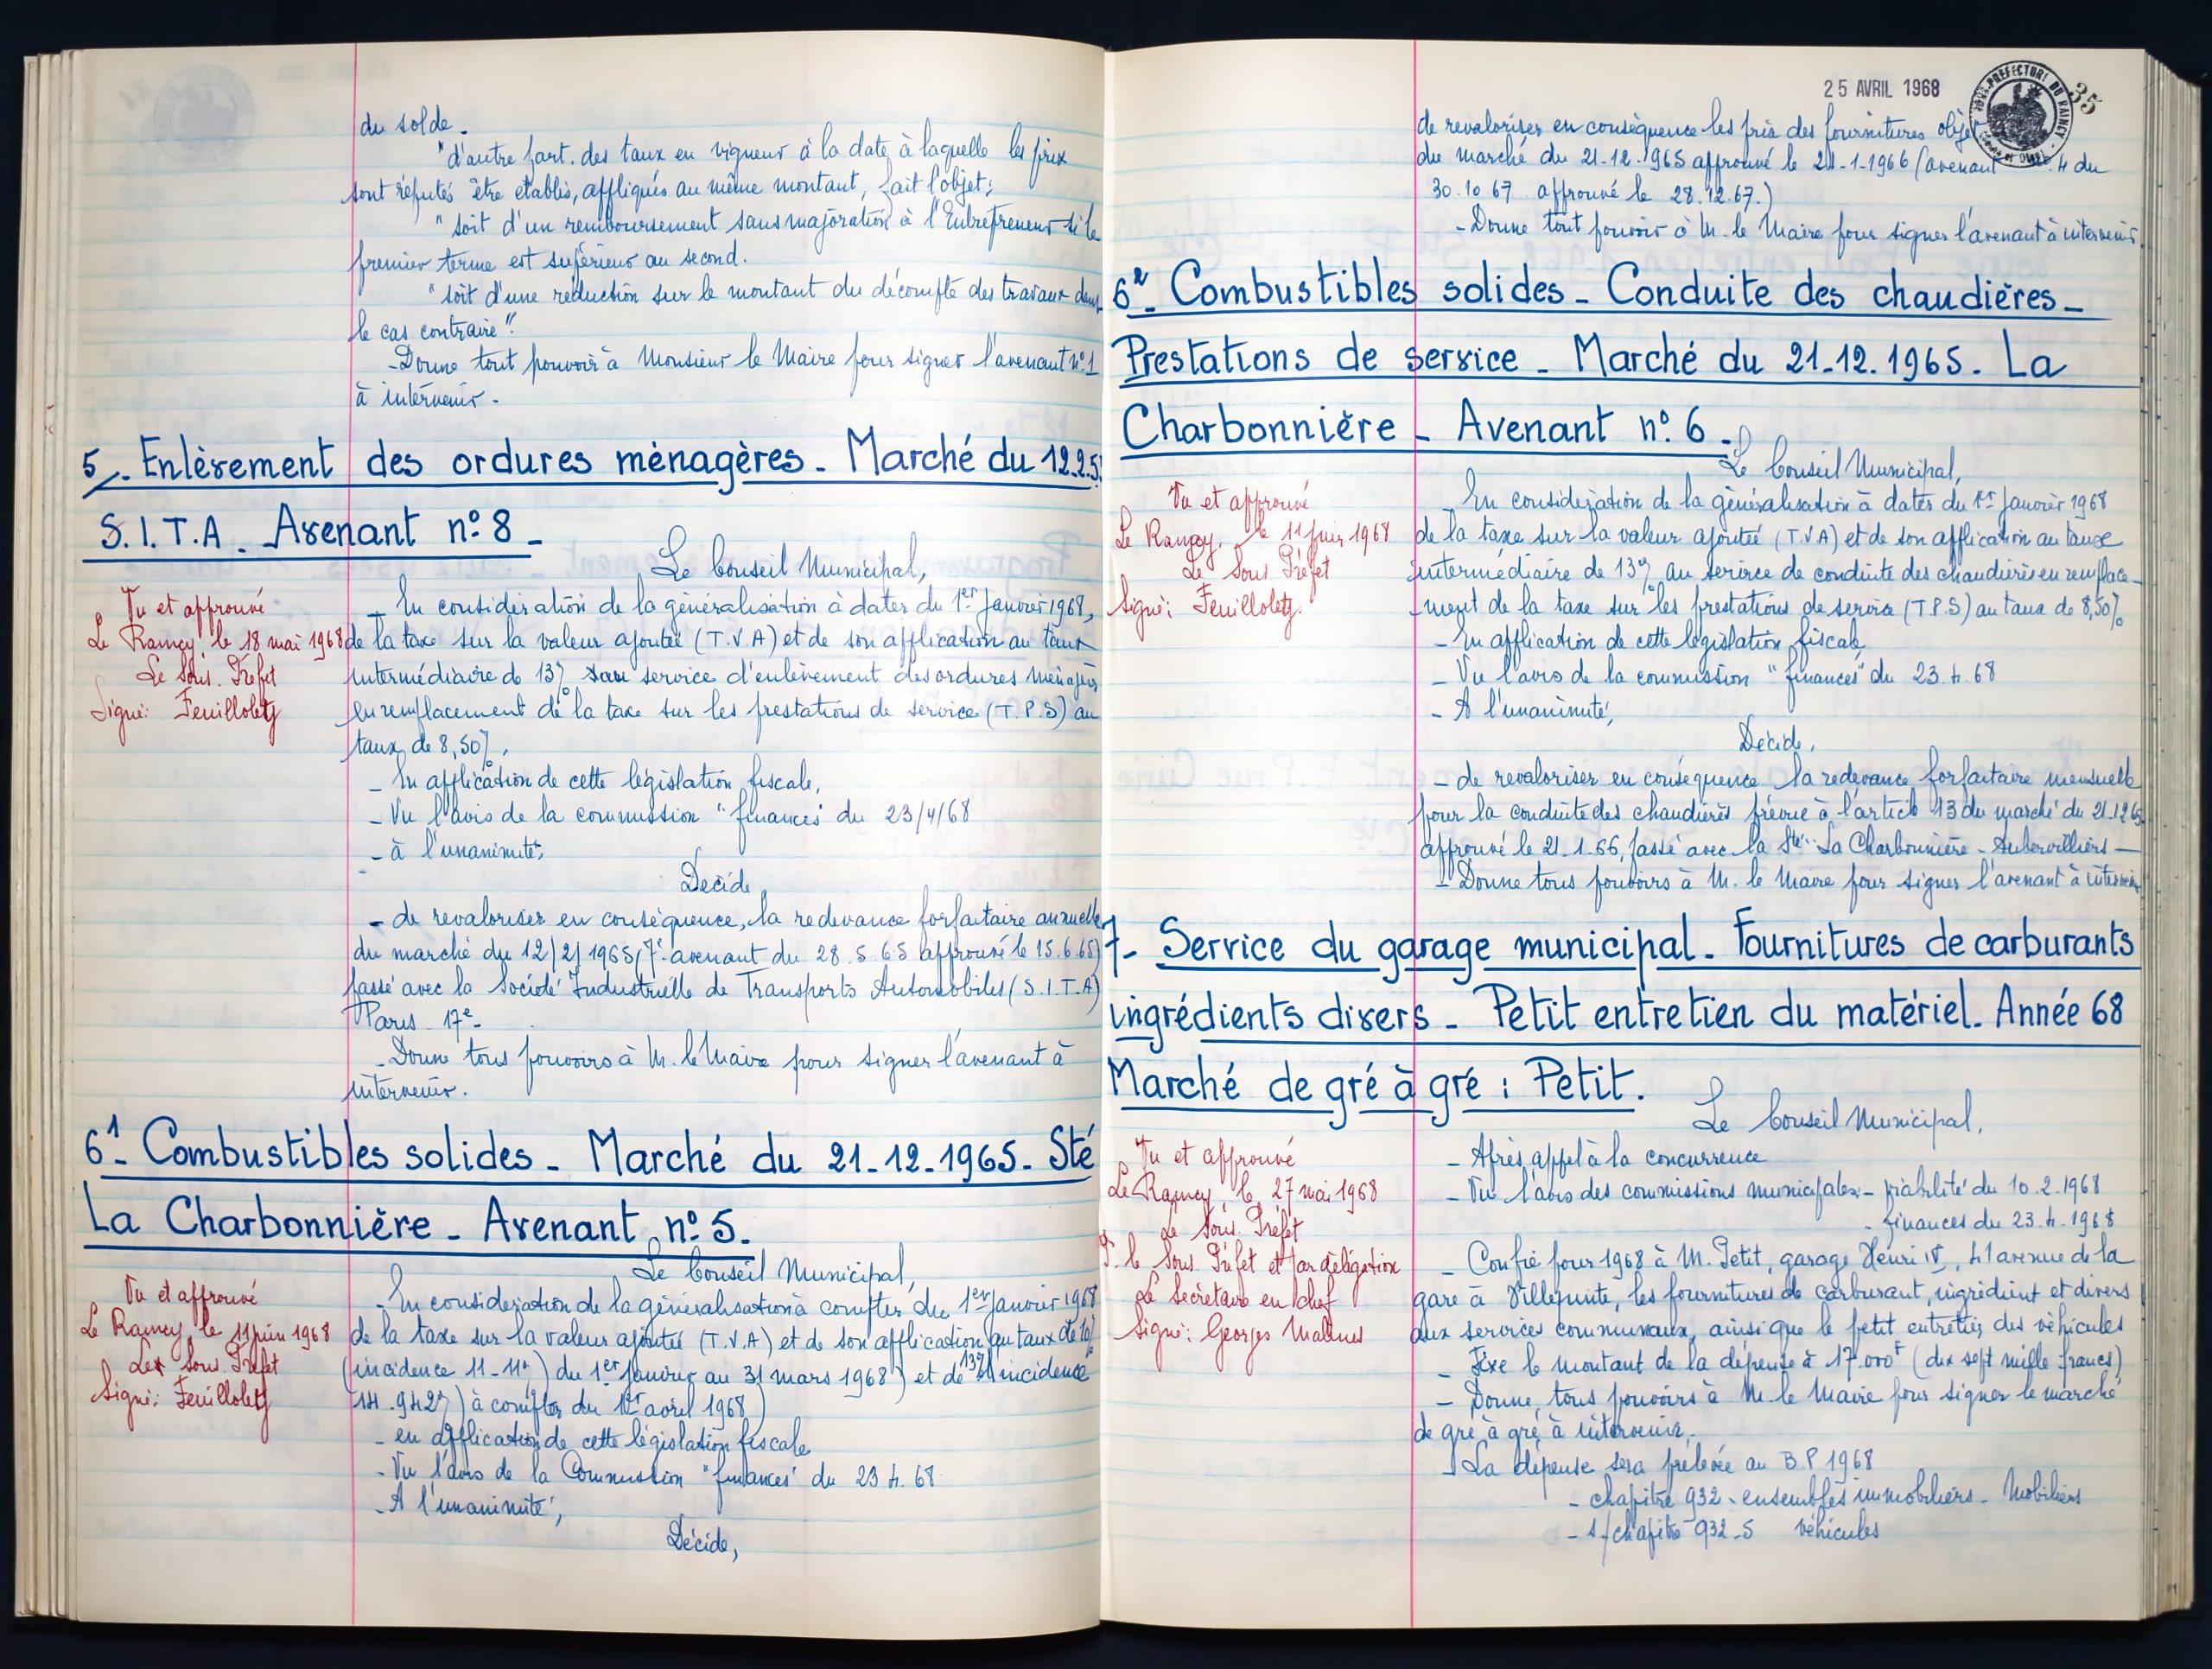 du solde.
"d'autre part. des taux en vigueur à la date à laquelle les prix
sont réputés être établis, appliqués au même montant, fait l'objet;
"soit d'un remboursement sans majoration à l'Entrepreneur si le
premier terme est supérieur au second.
"soit d'une réduction sur le montant du décompte des travaux dans
le cas contraire".
- Donne tout pouvoir à Monsieur le Maire pour signer l'avenant n°1
à intervenir.
5/. Enlèvement des ordures ménagères - Marché du 12.2.5
S.I.T.A. Avenant n° 8 -
Le Conseil Municipal,
Vu et approuvé
Le Raincy, le 18 mai 1968
Le Sous. Préfet
Signé: Feuilloley
- En considération de la généralisation à dater du 1er Janvier 1968,
de la taxe sur la valeur ajoutée (T.V.A) et de son application au taux
intermédiaire de 13% au service d'enlèvement des ordures ménagères
en remplacement de la taxe sur les prestations de service (T.P.S) au
taux de 8,50%,
- En application de cette législation fiscale,
- Vu l'avis de la commission "finances" du 23/4/68
- à l'unanimité;
Décide,
- de revaloriser en conséquence, la redevance forfaitaire annuelle
du marché du 12/2/1965 (7e avenant du 28.5.65 approuvé le 15.6.65)
passé avec la Société Industrielle de Transports Automobiles (S.I.T.A)
Paris 17e -
- Donne tous pouvoirs à M. le Maire pour signer l'avenant à
intervenir.
6¹- Combustibles solides - Marché du 21-12-1965- Sté
La Charbonnière - Avenant n° 5.
Le Conseil Municipal,
Vu et approuvé
Le Raincy, le 11 juin 1968
Le Sous Préfet
Signé: Feuilloley
- En considération de la généralisation à compter du 1er Janvier 1968
de la taxe sur la valeur ajoutée (T.V.A) et de son application au taux de 10%
(incidence 11-11%) du 1er Janvier au 31 mars 1968) et de 13% (incidence
14.942%) à compter du 1er avril 1968)
- en application de cette législation fiscale
- Vu l'avis de la Commission "finances" du 23.4.68
- A l'unanimité,
Décide,
25 AVRIL 1968
SOUS-PREFECTURE DU RAINCY
35
de revaloriser en conséquence les prix des fournitures objet
du marché du 21-12-1965 approuvé le 21-1-1966 (avenant n° 4 du
30.10.67 approuvé le 28.12.67.)
- Donne tout pouvoir à M. le Maire pour signer l'avenant à intervenir.
6²- Combustibles solides - Conduite des chaudières -
Prestations de service - Marché du 21-12.1965- La
Charbonnière - Avenant n° 6 -
Le Conseil Municipal,
Vu et approuvé
Le Raincy, le 11 juin 1968
Le Sous Préfet
Signé: Feuilloley.
- En considération de la généralisation à dater du 1er Janvier 1968
de la taxe sur la valeur ajoutée (T.V.A) et de son application au taux
intermédiaire de 13% au service de conduite des chaudières en remplace-
ment de la taxe sur les prestations de service (T.P.S) au taux de 8,50%
- En application de cette législation fiscale,
- Vu l'avis de la commission "finances" du 23.4.68
- A l'unanimité,
Décide,
- de revaloriser en conséquence la redevance forfaitaire mensuelle
pour la conduite des chaudières prévue à l'article 13 du marché du 21.12.65
approuvé le 21.1.66, passé avec la Sté. La Charbonnière - Aubervilliers -
- Donne tous pouvoirs à M. le Maire pour signer l'avenant à intervenir
7- Service du garage municipal - Fournitures de carburants
ingrédients divers - Petit entretien du matériel. Année 68
Marché de gré à gré : Petit.
Le Conseil Municipal,
Vu et approuvé
Le Raincy, le 27 mai 1968
Le Sous. Préfet
P. le Sous. Préfet et par délégation
Le Secrétaire en chef
Signé: Georges
- Après appel à la concurrence
- Vu l'avis des commissions municipales - viabilité du 10.2.1968
- finances du 23.4.1968
- Confie pour 1968 à M. Petit, garage Henri IV, 41 avenue de la
gare à Villepinte, les fournitures de carburant, ingrédient et divers
aux services communaux, ainsi que le petit entretien des véhicules
- Fixe le montant de la dépense à 17.000F (dix sept mille francs)
- Donne, tous pouvoirs à M. le Maire pour signer le marché
de gré à gré à intervenir.
- La dépense sera prélevée au B.P 1968
- chapitre 932 - ensembles immobiliers - Mobiliers
- s/chapitre 932-5 véhicules